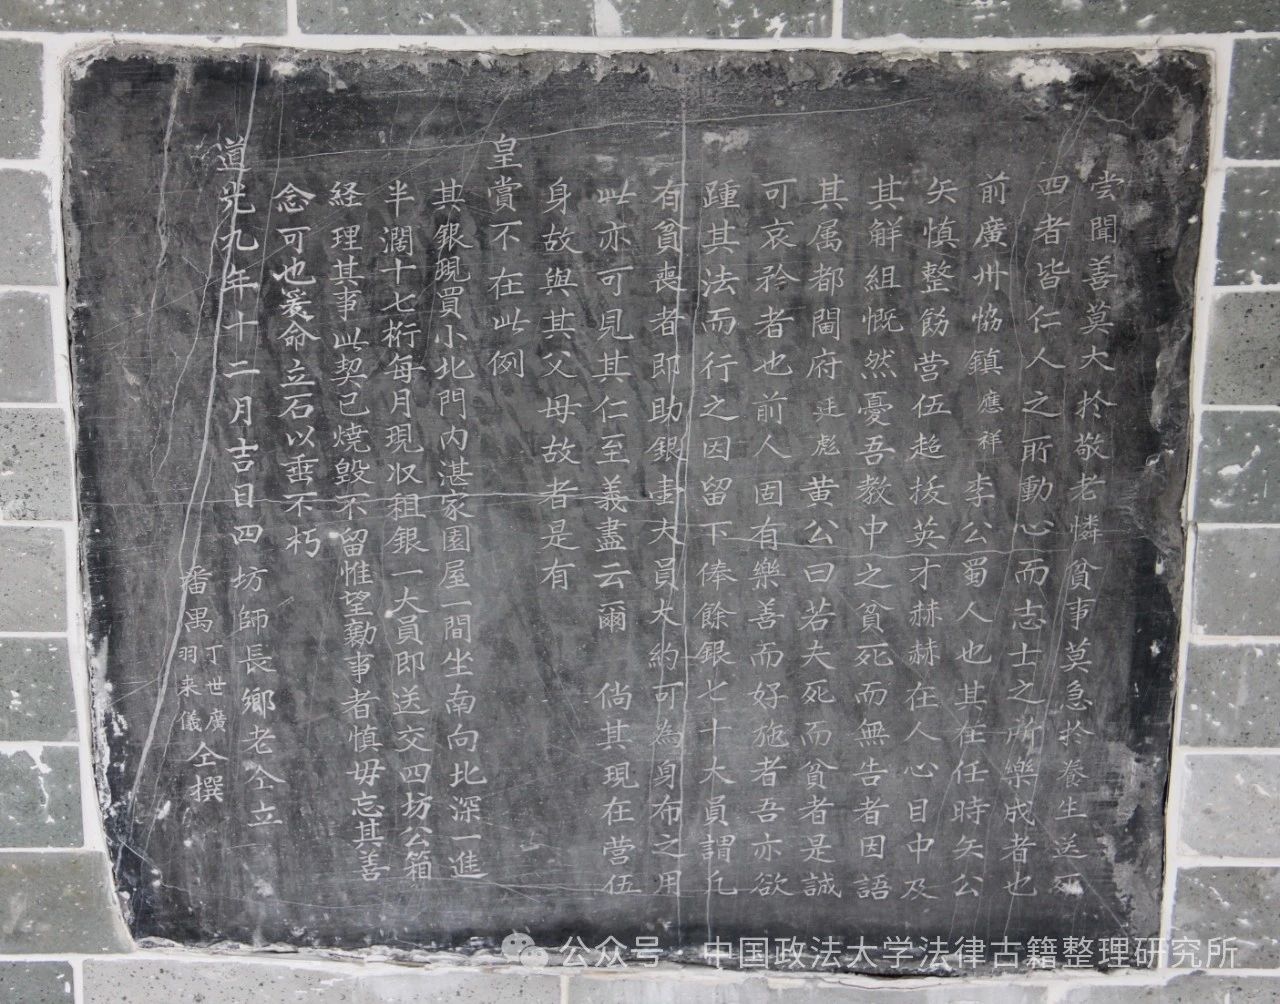 尝聞善莫大扵敬老憐貧事莫急扵養生送死
四者皆仁人之所動心而志士之所樂成者也
前廣州恊鎮應祥李公蜀人也其在任時矢公
矢慎整飭营伍超拔英才赫赫在人心目中及
其解組慨然憂吾教中之貧死而無告者因語
其属都閫府廷彪黄公曰若夫死而貧者是誠
可哀矜者也前人固有樂善而好施者吾亦欲
踵其法而行之因留下俸餘銀七十大員謂凡
有貧喪者即助銀壹大員大約可為身布之用
此亦可見其仁至義盡云爾 倘其現在营伍
身故與其父母故者是有
皇賞不在此例
其銀現買小北門内湛家園屋一間坐南向北深一進
半濶十七桁每月現収租銀一大員即送交四坊公箱
経理其事此契已燒毀不留惟望勷事者慎毋忘其善
念可也爰命立石以垂不朽
道光九年十二月吉日四坊師長鄉老仝立
番禺丁世廣羽来儀仝撰
公众号 · 中国政法大学法律古籍整理研究所